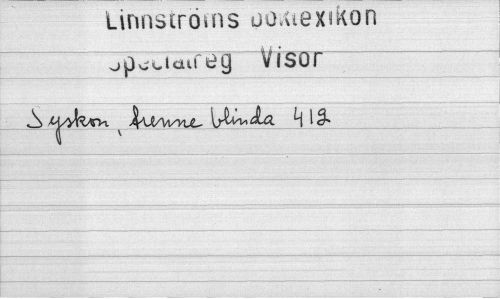 Linnströms boklexikon
Specialreg Visor
Syskon, trenne blinda 412